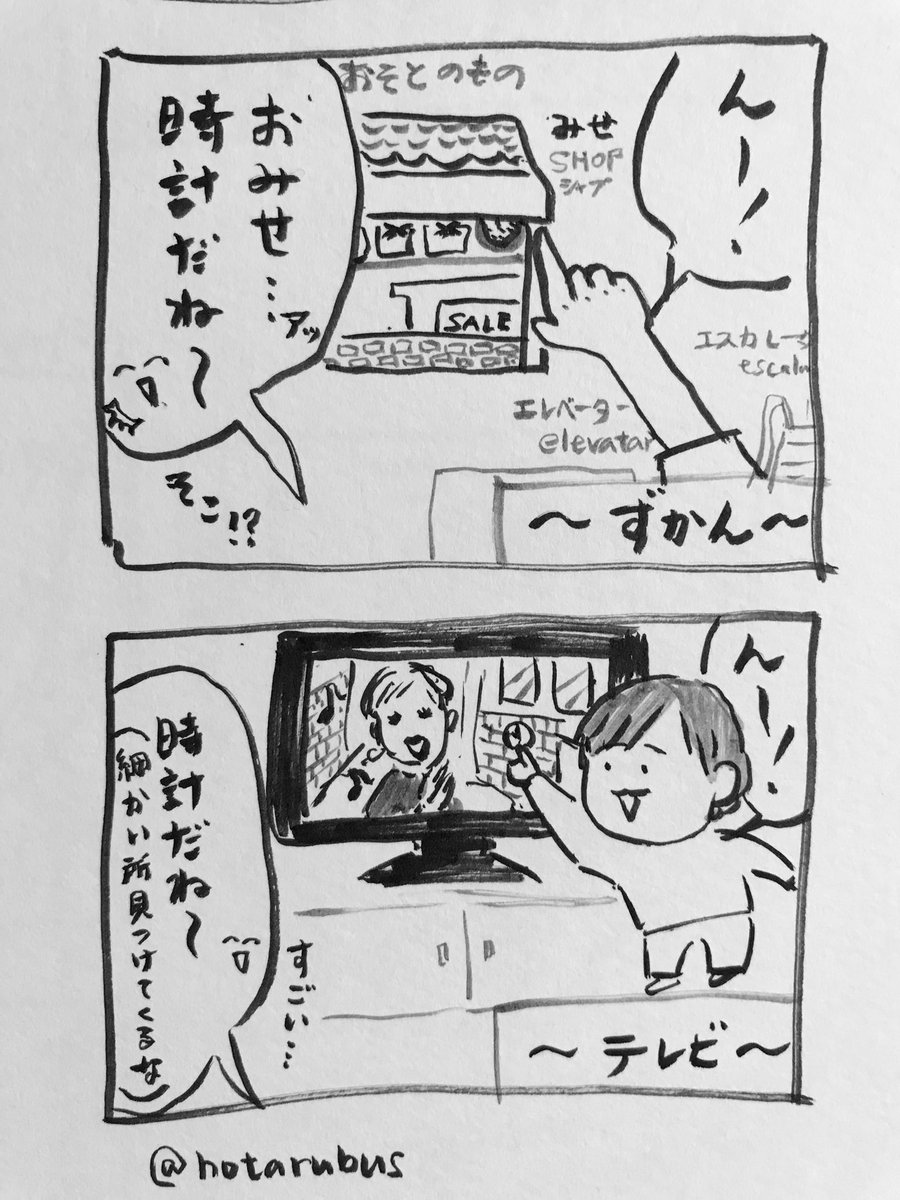 んー!
おそとのもの
みせ
SHOP
シャプ
おみせ…
アッ
時計だね〜
そこ!?
SALE
エスカレー
escala
エレベーター
@levatar
〜ずかん〜
んー!
時計だね〜
(細かい所見つけてくるな)
すごい…
〜テレビ〜
@hotarubus